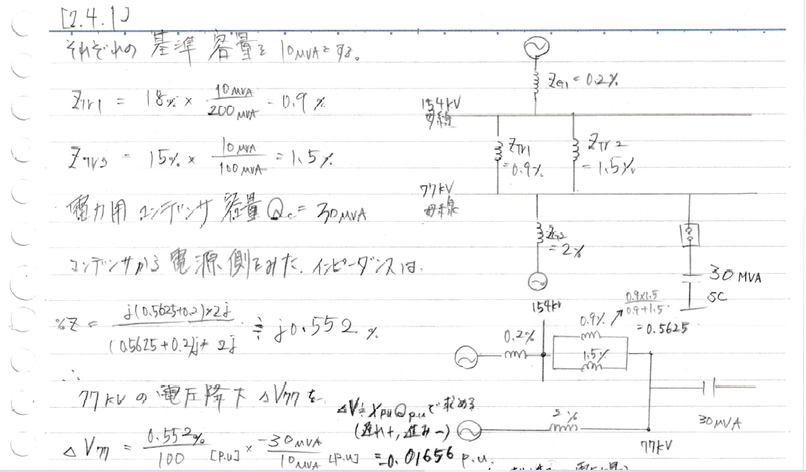 [2.4.1]
それぞれの基準容量を10MVAとする。
Z_Tr1 = 18% × 10MVA/200MVA = 0.9%
Z_Tr2 = 15% × 10MVA/100MVA = 1.5%
電力用コンデンサ容量Qc = 30MVA
コンデンサから電源側をみた、インピーダンスは、
%Z = j(0.5625+0.2)×2j/(0.5625+0.2)j+2j ≒ j0.552%
∴
77kVの電圧降下ΔV77を
ΔV≒XpuQpuで求める
(遅れ+, 進み−)
ΔV77 = 0.552%/100 [P.u] × -30MVA/10MVA [P.u] = -0.01656 p.u.
ZG1 = 0.2%
154kV
母線
Z_Tr1
= 0.9%
Z_Tr2
= 1.5%
77kV
母線
= 2%
30MVA
SC
154kV
0.9×1.5/0.9+1.5
= 0.5625
0.2%
0.9%
1.5%
2%
30MVA
77kV